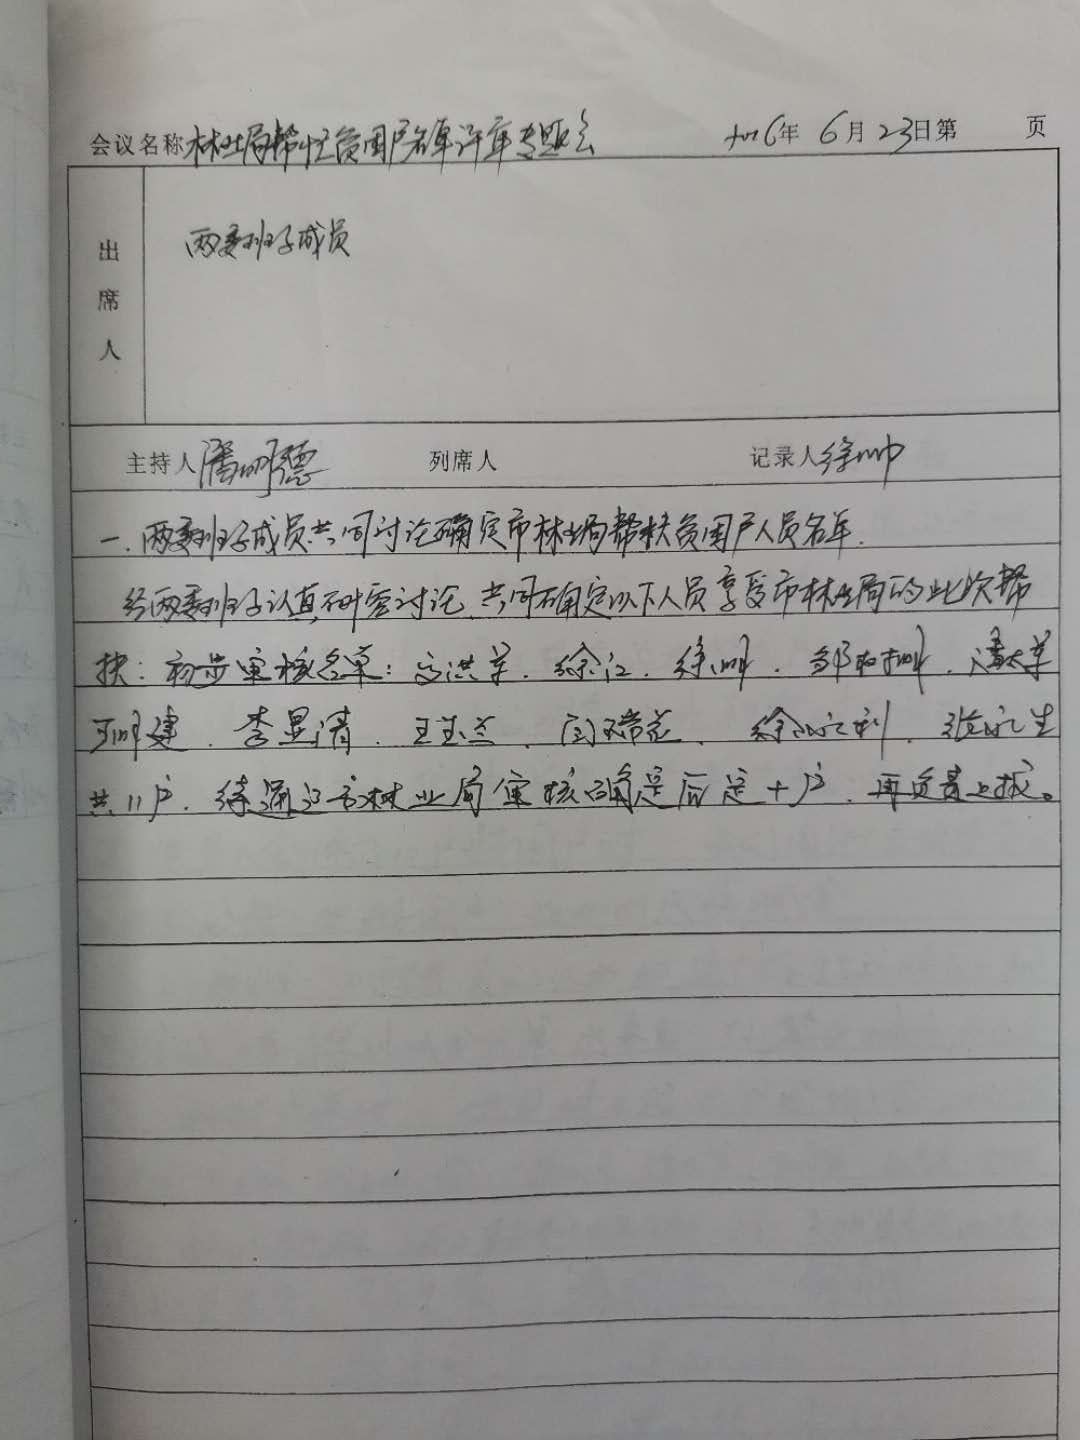 会议名称 林业局帮忙贫困户名单评审专题会 2016年 6月23日第 页
出席人
两委班子成员
主持人 潘明德 列席人 记录人 徐帅
一.两委班子成员共同讨论确定市林业局帮扶贫困户人员名单.
经两委班子认真研究讨论.共同确定以下人员享受市林业局的此次帮
扶:初步审核名单:高洪军.徐江.徐明.邹树明.潘大军
王明建.李显清.王玉兰.闫瑞花.徐永利.张永生
共11户.待通过市林业局审核确定后定十户.再负责上报。